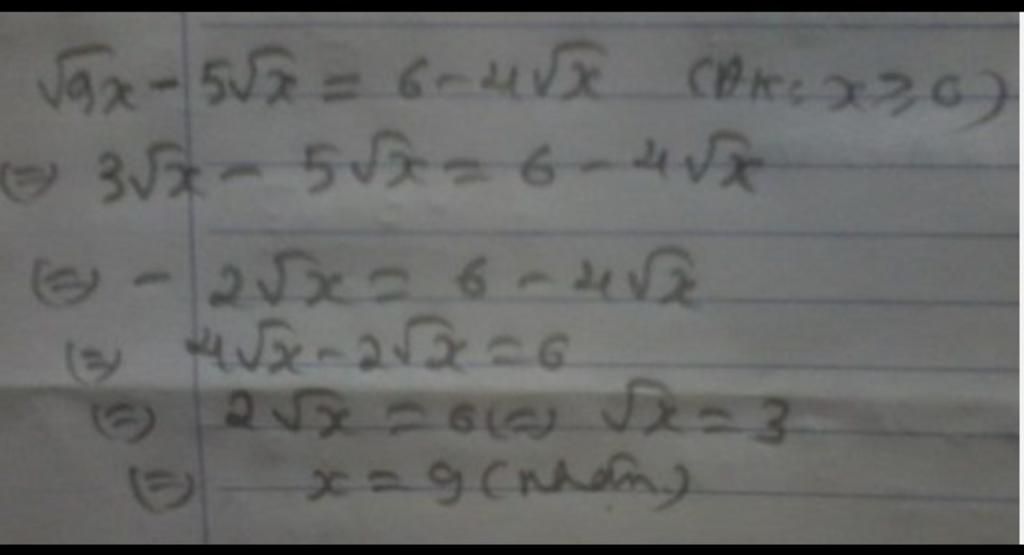 √9x - 5√x = 6 - 4√x (ĐK: x ≥ 0)
(=) 3√x - 5√x = 6 - 4√x
(=) - 2√x = 6 - 4√x
(=) 4√x - 2√x = 6
(=) 2√x = 6 (=) √x = 3
(=) x = 9 (nhận)